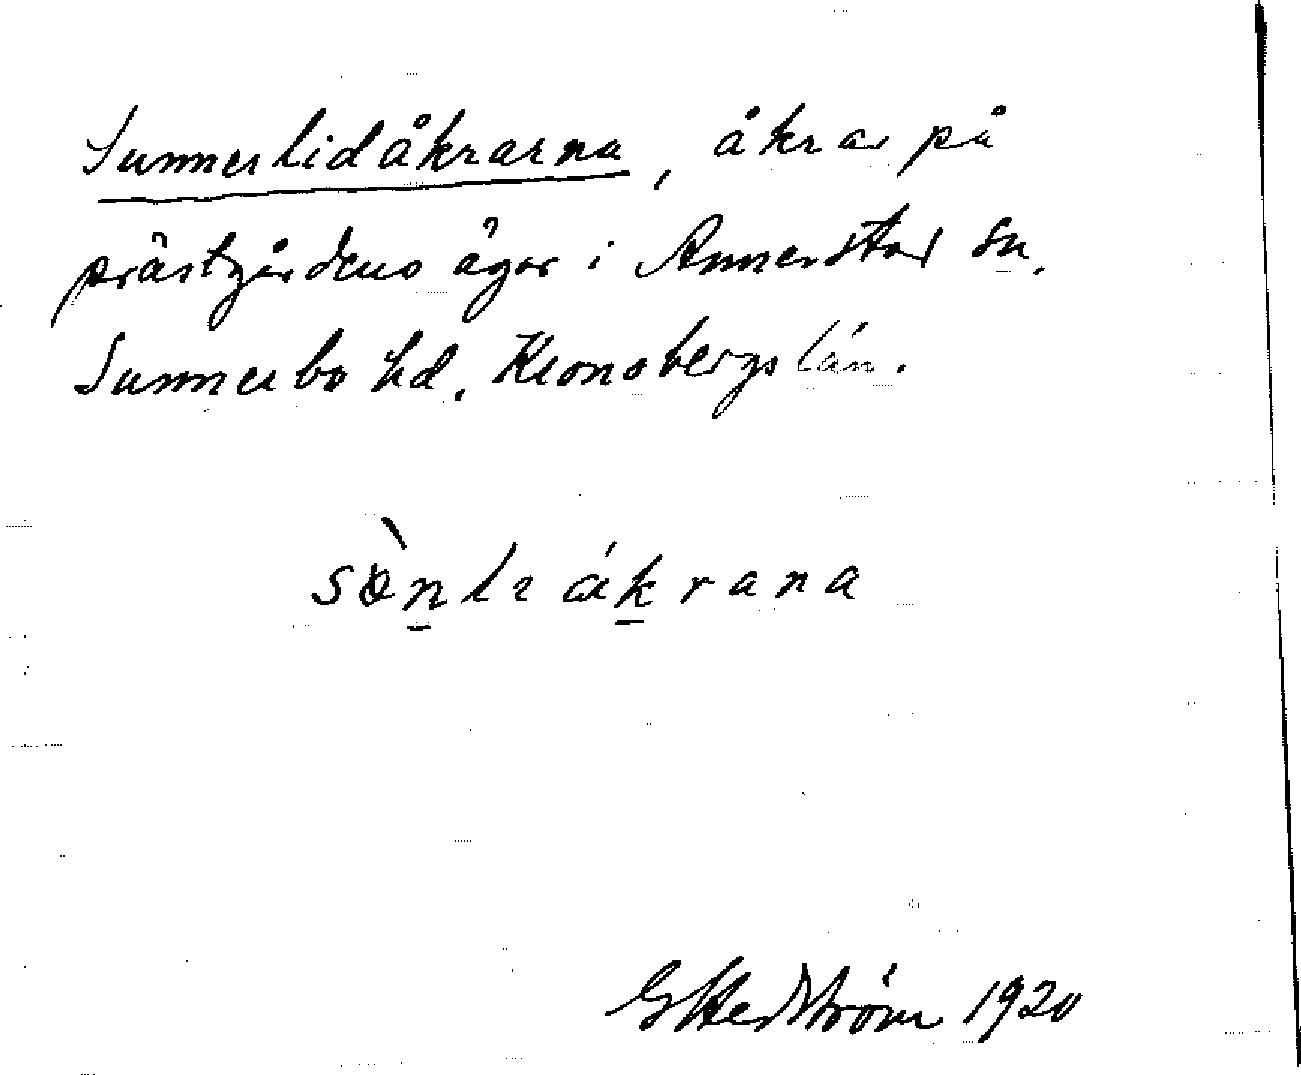 Sunnerlidåkrarna, åkrar på
prästgårdens ägor i Annerstad sn,
Sunnerbo hd, Kronobergs län.
åkrana
Hedström 1920